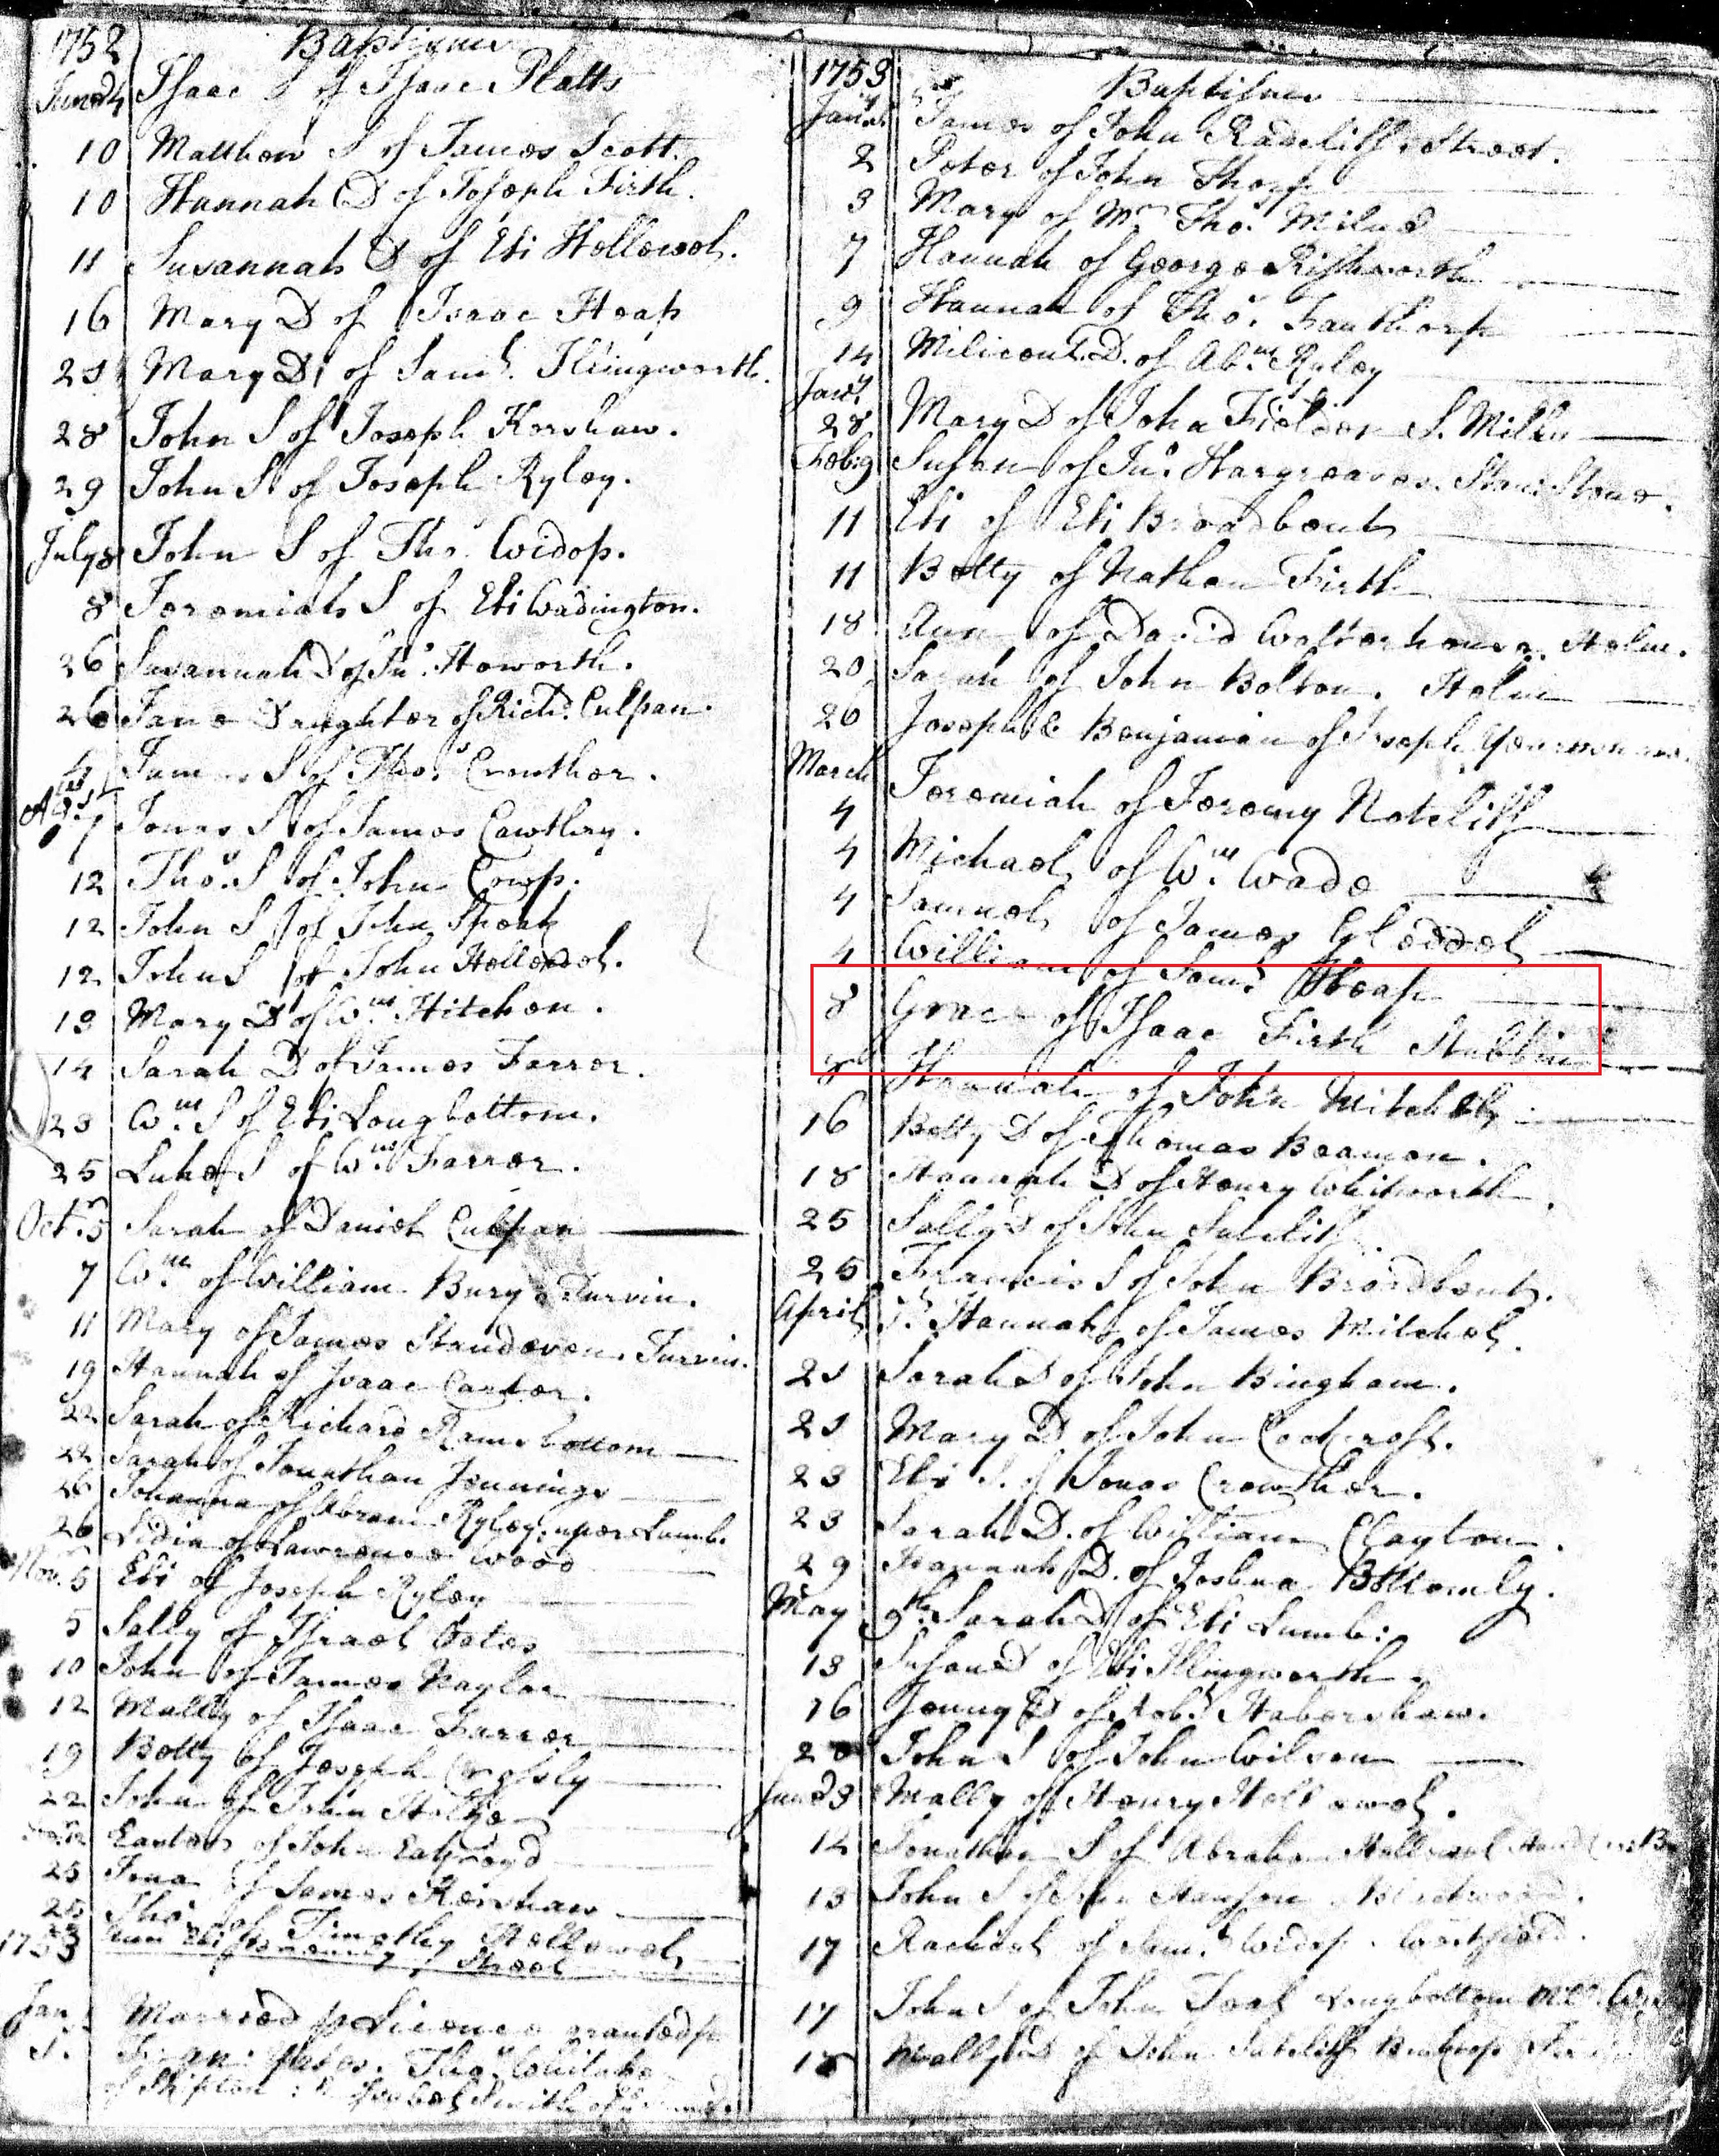 1752 Baptisms
June 4 Isaac S of Isaac Platts
10 Matthew S of James Scott.
10 Hannah D of Joseph Firth.
11 Susannah D of Eli Hollowel.
16 Mary D of Isaac Heap
21 Mary D of Saml. Illingworth.
28 John S of Joseph Kershaw.
29 John S of Joseph Ryley.
July 8 John S of Tho. Widop.
8 Jeremiah S of Eli Wadington.
26 Susannah D of Jno. Haworth.
26 Jane Daughter of Richd. Culpan.
James S of Tho. Crowther.
Jonas S of James Cawthry.
12 Tho. S of John
12 John S of John Speak
12 John S of John Hellowel.
13 Mary D of Wm. Hitchon.
14 Sarah D of James Farrer.
23 Wm. S of Eli Longbottom.
25 Luke S of Wm. Farrer.
Octr. 5 Sarah of Daniel Culpan
7 Wm. of William Bury Turvin.
11 Mary of James Standeven. Turvin.
19 Hannah of Isaac Carter.
22 Sarah of Richard Ramsbottom
22 Sarah of Jonathan Jennings
26 Johanna of Abram Ryley, uper Lumb.
26 Lidia of Lawrence Wood
Nov. 5 Eli of Joseph Ryley
5 Sally of Israel Oates
10 John of James Naylor
12 Mally of Isaac Farrer
19 Betty of Joseph Crossly
22 John of John
of John
25 of James Kershaw
25 Tho. of Timothy Hellowel
1753
Jan Married p Licence granted p
Tho. Whitaker
of Skipton Smith of
1753 Baptisms
Jany. James of John Radcliff. Street.
2 Peter of John Thorp
3 Mary of Mr. Tho. Milne
7 Hannah of George Rishworth
9 Hannah of Tho. Fauthorp
14 Milicent D. of Abm. Ryley
Jany.
28 Mary D of John Fielden S. Milln
Feb: 9 Susan of Jno. Hargreaves. Stone.
11 Eli of Eli Broadbent
11 Betty of Nathan Firth
18 Ann of David Wolfenhouse. Holm.
20 Sarah of John Bolton. Holm
26 Joseph & Benjamin of Joseph
March
4 Jeremiah of Jeremy Notcliff
4 Michael of Wm. Wade
4 Samuel of James Gleddel
4 William of Saml. Heap
8 Grace of Isaac Firth Stubbin
8 Hannah of John Mitchel
16 Betty D of Thomas Beamon.
18 Hannah D of Henry Whitworth.
25 Sally D of John Sutcliff.
25 Francis S of John Broadbent.
April Hannah of James Mitchel.
21 Sarah D of John Bingham.
21 Mary D of John Cockcroft.
23 Eli S. of Jonas Crowther.
23 Sarah D. of William Clayton.
29 Hannah D. of Joshua Bottomly.
May 9th. Sarah D of Eli Lumb:
13 Susan D of Eli Illingworth.
16 Jenny D of Robt. Habershaw.
20 John S of John Wilson
June 3 Mally of Henry Hellowel.
12 Jonathan S of Abraham Hellowel
13 John S of John Hanson Blackwood.
17 Rachel of Saml. Widop.
17 John S of John Longbottom
18 Mally D of John Sutcliff